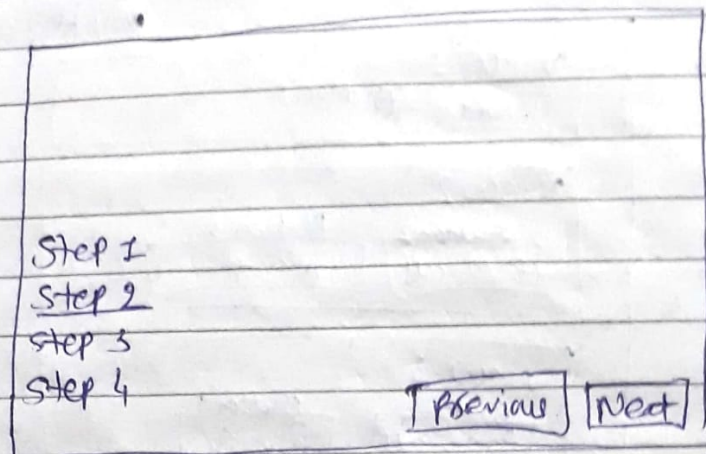 Step 1
Step 2
Step 3
Step 4
Previous Next